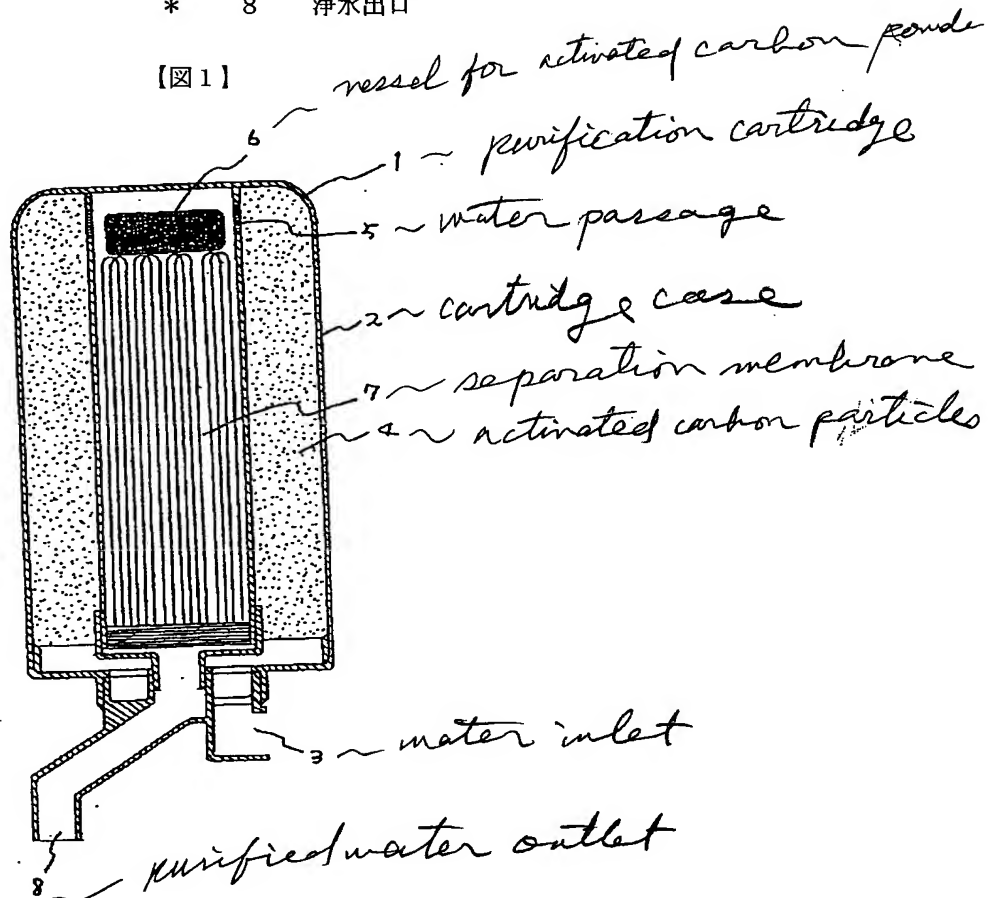 * 8 浄水出口
【図1】
6 ~ vessel for activated carbon powde
1 ~ purification cartridge
5 ~ water passage
2 ~ cartridge case
7 ~ separation membrane
4 ~ activated carbon particles
3 ~ water inlet
8 ~ purified water outlet